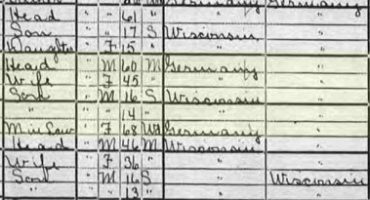 Head " " 61 " " "
Son " " 17 S Wisconsin "
Daughter " F 15 " " "
Head " M 60 M Germany "
Wife " F 45 " " "
Son " M 16 S Wisconsin "
" " " 14 " " "
M in Law " F 68 Wd Germany "
Head " M 46 M Wisconsin "
Wife " F 36 " " "
Son " M 16 S " Wisconsin
" " " 13 " " "